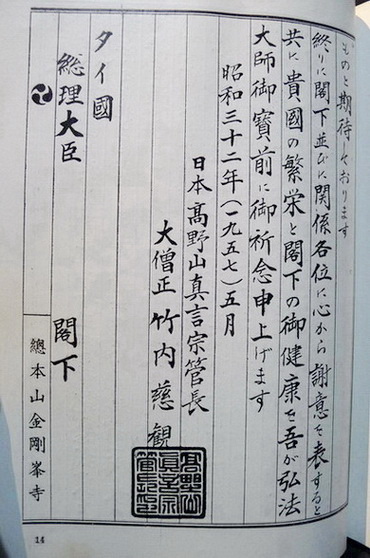 ものと期待しております
終りに閣下並びに関係各位に心から謝意を表すると
共に貴國の繁栄と閣下の御健康を吾が弘法
大師御寳前に御祈念申上げます
昭和三十二年(一九五七)五月
日本髙野山真言宗管長
大僧正竹内慈觀
タイ國
総理大臣 閣下
總本山金剛峯寺
14